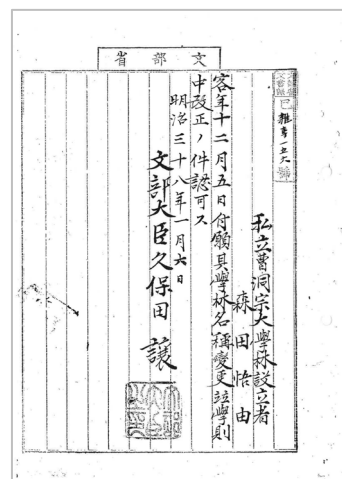 文部省
文部省文書課
巳雜専一五六號
私立曹洞宗大學林設立者
森田悟由
客年十二月五日付願具學林名稱變更竝學則
中改正ノ件認可ス
明治三十八年一月六日
文部大臣久保田譲